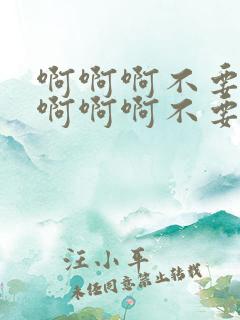 啊啊啊不要
啊啊啊不要
汪小平
未经同意禁止转载